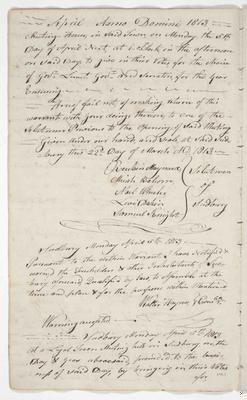 April Anno Domini 1813
Meeting House in said Town on Monday the 5th
Day of April Next at o Clock in the afternoon
on said Day to give in their Votes for the Choice
of Govr Lieut Govr and Senators for the Year
Ensuing
Hereof fail not of making return of this
warrant with your doings thereon to one of the
Selectmen Previous to the opening of said Meeting
Given under our hands and Seals at Said Sud
bury this 22d Day of March AD 1813
Reuben Maynard
Selectmen
of
Sudbury
Noel Wheeler
Samuel Knight
Sudbury Monday April 5th 1813
Pursuant to the within Warrant I have Notified &
warned the freeholders & other Inhabitants of Sud
bury Qualified as to assemble at the
time and place & for the purposes within mentioned
Walter Haynes Constbl
Warning accepted
Sudbury Monday April 5th 1813
At a Legal Town Meeting held in Sudbury on the
Day & Year abovesaid proceeded to the busi
ness of said Day by bringing in their Votes
for